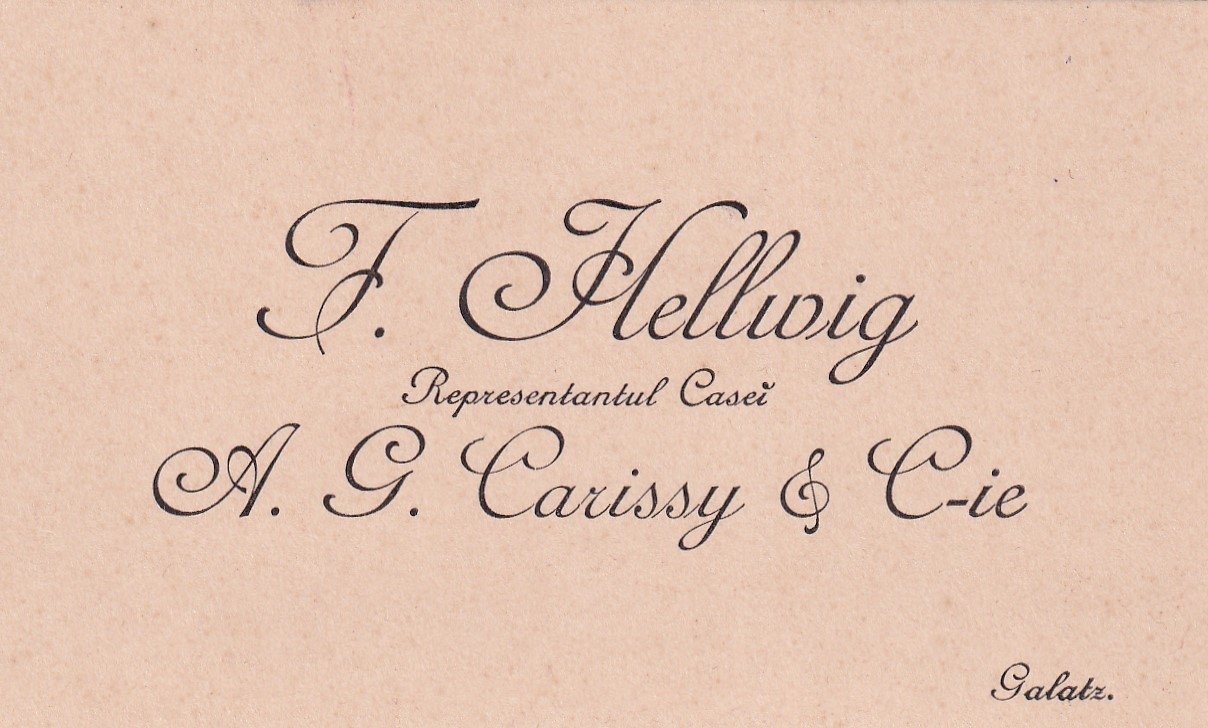 F. Hellwig
Representantul Caseĭ
A. G. Carissy & C-ie
Galatz.